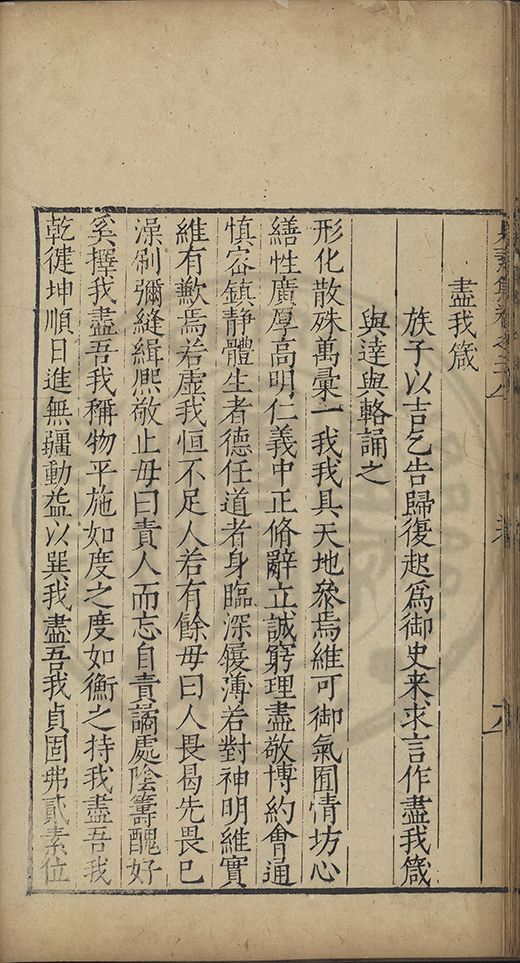 盡我箴
族子以吉乞告歸復起爲御史来求言作盡我箴
與逹與輅誦之
形化散殊萬彚一我我具天地叅焉維可御氣囿情坊心
繕性廣厚高明仁義中正脩辭立誠窮理盡敬博約會通
慎宻鎮静體生者德任道者身臨深履薄若對神明維實
維有歉焉若虛我恒不足人若有餘毋曰人畏曷先畏已
澡刷彌縫緝熈敬止毋曰責人而忘自責謫處陰籌醜好
奚擇我盡吾我稱物平施如度之度如衡之持我盡吾我
乾健坤順日進無疆動益以巽我盡吾我貞固弗貳素位